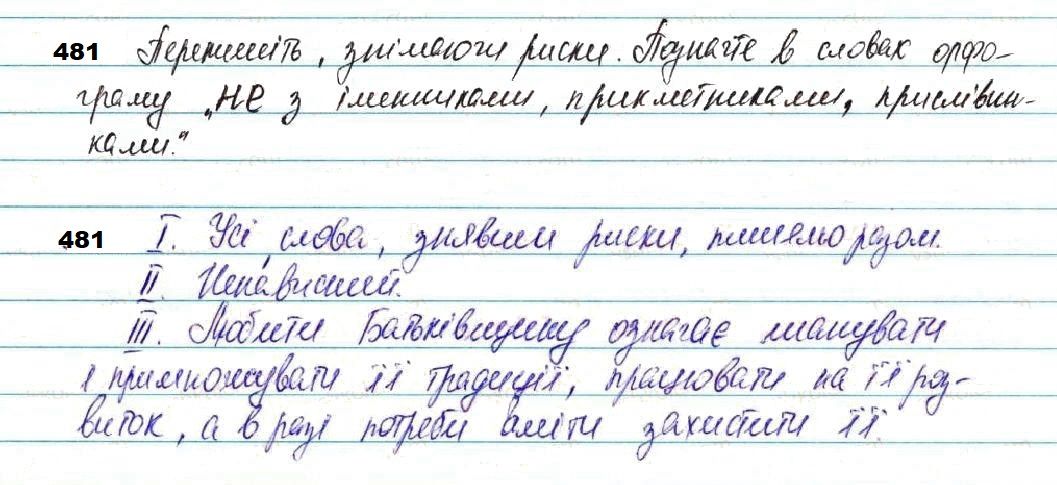 481 Перепишіть, знімаючи риски. Позначте в словах орфо-
граму „не з іменниками, прикметниками, прислівни-
ками."
481 I. Усі слова, знявши риски, пишемо разом.
II. Ненависний.
III. Любити Батьківщину означає шанувати
і примножувати її традиції, працювати на її роз-
виток, а в разі потреби вміти захистити її.